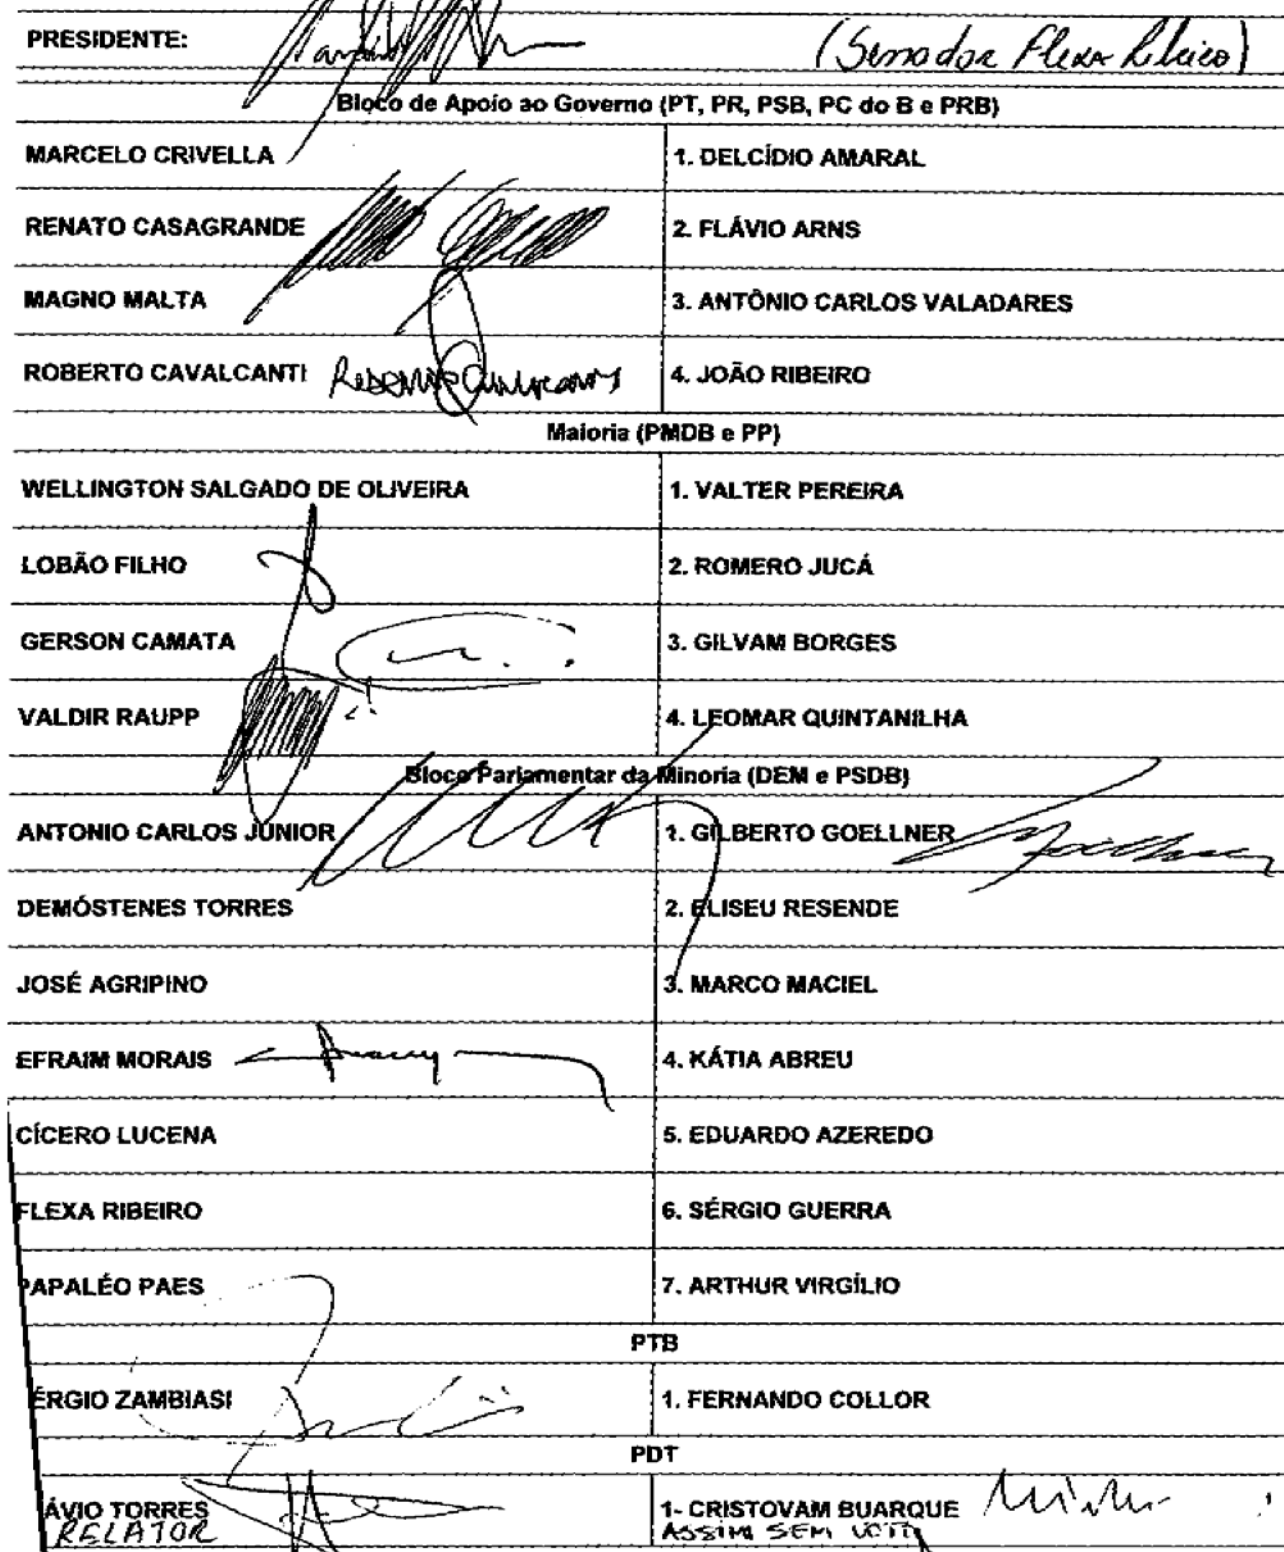 PRESIDENTE: (Senador Flexa Ribeiro)
Bloco de Apoio ao Governo (PT, PR, PSB, PC do B e PRB)
MARCELO CRIVELLA 1. DELCÍDIO AMARAL
RENATO CASAGRANDE 2. FLÁVIO ARNS
MAGNO MALTA 3. ANTÔNIO CARLOS VALADARES
ROBERTO CAVALCANTI 4. JOÃO RIBEIRO
Maioria (PMDB e PP)
WELLINGTON SALGADO DE OLIVEIRA 1. VALTER PEREIRA
LOBÃO FILHO 2. ROMERO JUCÁ
GERSON CAMATA 3. GILVAM BORGES
VALDIR RAUPP 4. LEOMAR QUINTANILHA
Bloco Parlamentar da Minoria (DEM e PSDB)
ANTONIO CARLOS JÚNIOR 1. GILBERTO GOELLNER
DEMÓSTENES TORRES 2. ELISEU RESENDE
JOSÉ AGRIPINO 3. MARCO MACIEL
EFRAIM MORAIS 4. KÁTIA ABREU
CÍCERO LUCENA 5. EDUARDO AZEREDO
FLEXA RIBEIRO 6. SÉRGIO GUERRA
PAPALÉO PAES 7. ARTHUR VIRGÍLIO
PTB
ÉRGIO ZAMBIASI 1. FERNANDO COLLOR
PDT
ÁVIO TORRES 1- CRISTOVAM BUARQUE
RELATOR SEM